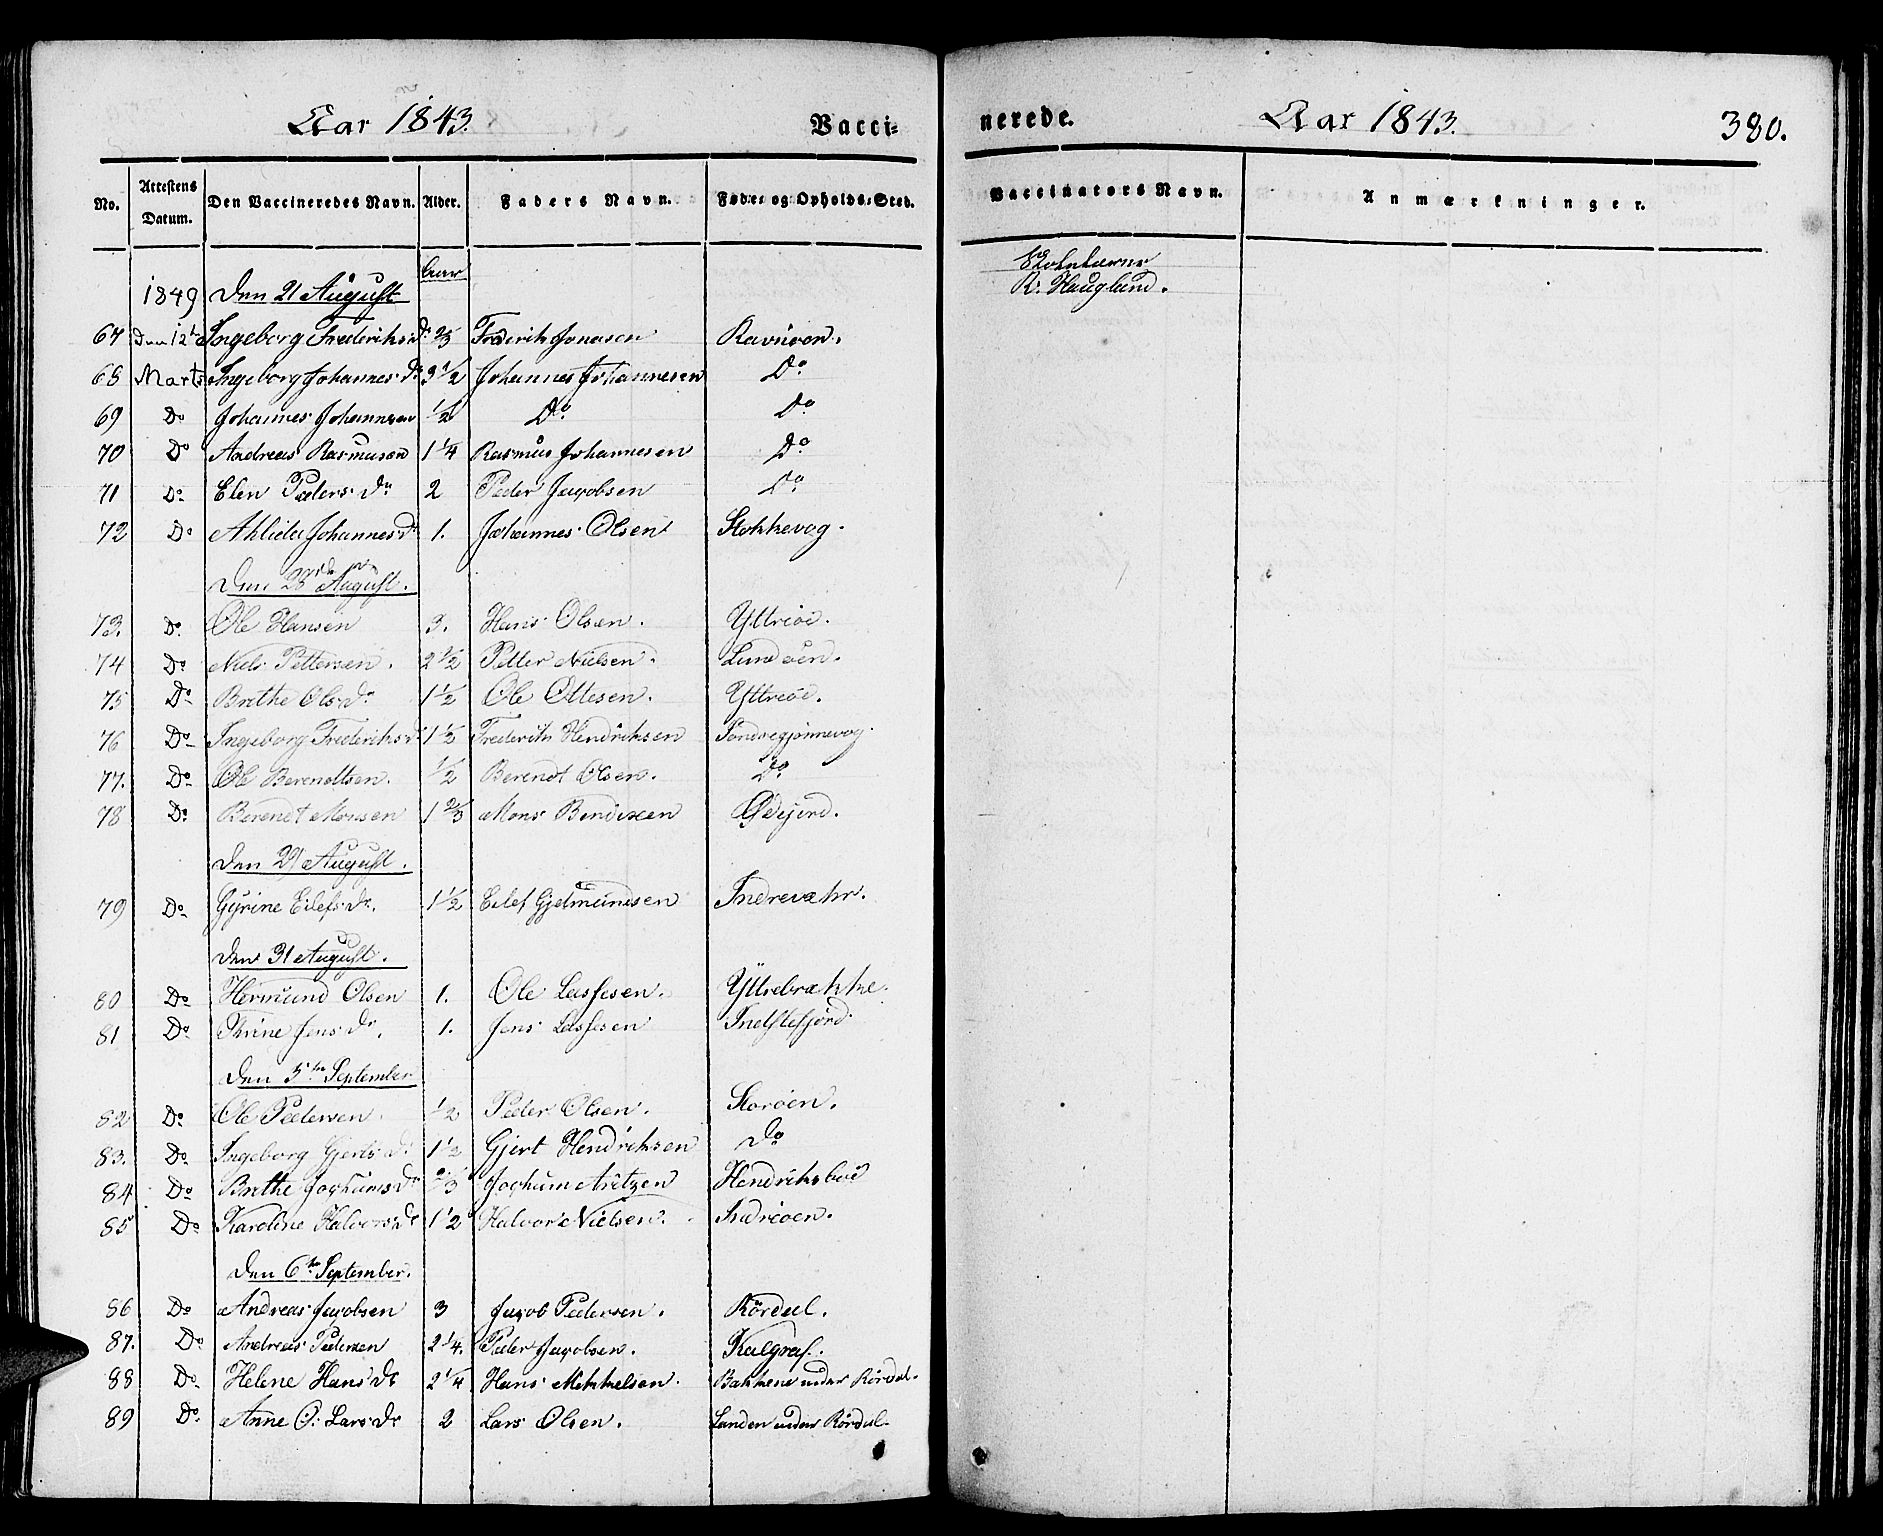 Aar 1843. Vacci-
No. Attestens Datum. Den Vaccineredes Navn. Alder. Faders Navn. Føde- og Opholds-Sted.
Aar
1849 Den 21 August
67 Den 12te Ingeborg Frederiksdr 2/3 Frederik Jonasen Ravnöen.
68 Marts Ingeborg Johannes Dr 3 1/2 Johannes Johannesen Do
69 Do Johannes Johannesen 1/2 Do Do
70 Do Andreas Rasmusen 1 1/4 Rasmus Johannesen Do
71 Do Elen Peders Dr 2 Peder Jacobsen Do
72 Do Johannes Dr 1. Johannes Olsen Stokkevog.
Den 28de August.
73. Do Ole Hansen 3. Hans Olsen. Yttreöe.
74 Do Niels Pettersen. 2 1/2 Petter Nielsen.
75 Do Brethe Ols Dr 1 1/2 Ole Ottesen. Yttreöe.
76 Do Ingeborg Frederiks Dr 1 1/2 Frederik Hendriksen
77. Do Ole Berendtsen. 1/2 Berendt Olsen. Do
78 Do Berendt Monsen 1 2/3 Mons Bendixen
Den 29 August.
79 Do Gyrine Eilefs Dr. 1 1/2 Eilef Gjelmundsen Indrevæhr.
Den 31 August.
80 Do Hermund Olsen 1. Ole Lassesen. Yttrebrække.
81 Do Thrine Jens Dr. 1. Jens Lassesen
Den 5te September
82 Do Ole Pedersen. 1/2 Peder Olsen. Storöen.
83. Do Ingeborg Gjerts Dr 1 1/2 Gjert Hendriksen Do
84 Do Brethe Jochums Dr 2/3 Jochum Hendriksböe
85 Do Karoline Halvors Dr 1 1/2 Halvor Nielsen. Indreöen.
Den 6te September.
86 Do Andreas Jacobsen 3 Jacob Pedersen. Rördal.
87. Do Andreas Pedersen 2 1/4. Peder Jacobsen.
88 Do Helene Hans Dr 2 1/4 Hans Mikkelsen. Bakkene under Rördal.
89 Do Anne O: Lars Dr 2 Lars Olsen. Sanden under Rördal.
nerede. Aar 1843. 380.
Vaccinateurs Navn. Anmærkninger.
R. Hauglund.